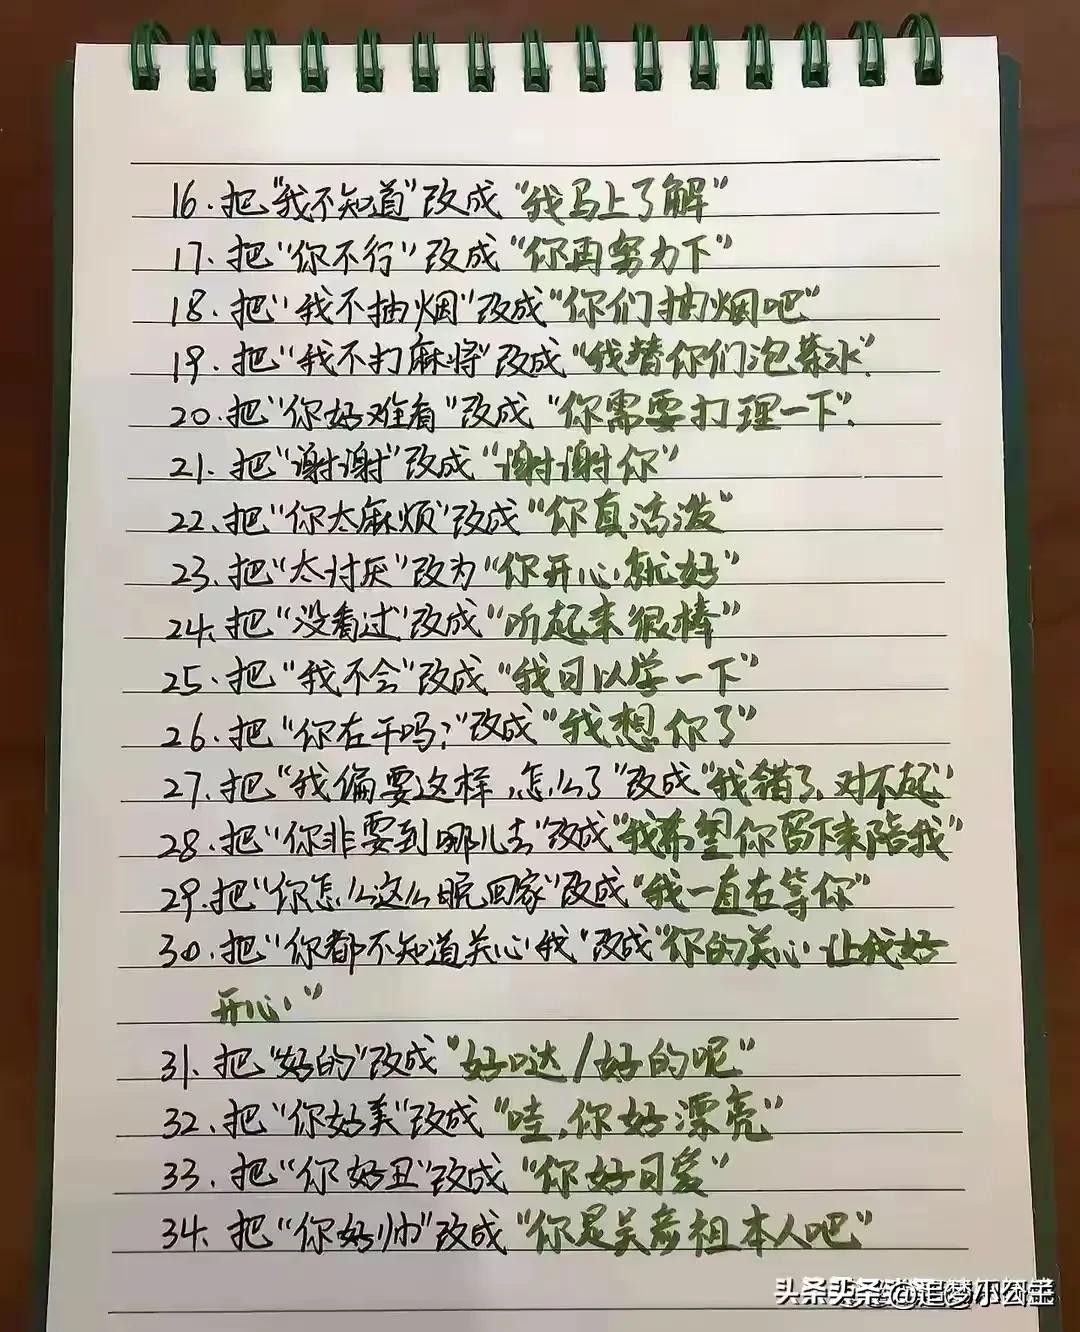 16.把"我不知道"改成"我马上了解"
17.把"你不行"改成"你再努力下"
18.把"我不抽烟"改成"你们抽烟吧"
19.把"我不打麻将"改成"我替你们泡茶水"
20.把"你好难看"改成"你需要打理一下".
21.把"谢谢"改成"谢谢你"
22、把"你太麻烦"改成"你真活泼"
23.把"太讨厌"改为"你开心就好"
24、把"没看过"改成"听起来很棒"
25.把"我不会"改成"我可以学一下"
26.把"你在干吗?"改成"我想你了"
27、把"我偏要这样,怎么了"改成"我错了、对不起"
28.把"你非要到哪儿去"改成"我希望你留下来陪我"
29.把"你怎么这么晚回家"改成"我一直在等你"
30.把"你都不知道关心我"改成"你的关心让我好
开心"
31、把"好的"改成"好哒/好的呢"
32、把"你好美"改成"哇,你好漂亮"
33.把"你好丑"改成"你好可爱"
34、把"你好帅"改成"你是吴彦祖本人吧"
头条 @追梦小公主